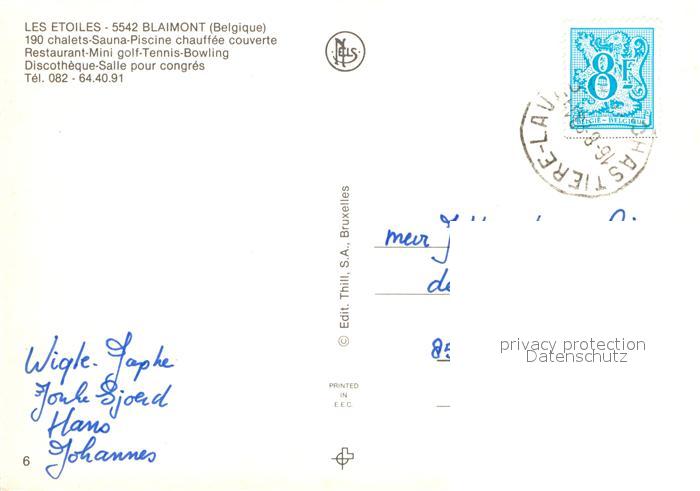 LES ETOILES - 5542 BLAIMONT (Belgique)
190 chalets-Sauna-Piscine chauffée couverte
Restaurant-Mini golf-Tennis-Bowling
Discothèque-Salle pour congrés
Tél. 082 - 64.40.91
NELS
8F
BELGIË - BELGIQUE
HASTIERE-LAV
16-8
© Edit. Thill, S.A., Bruxelles
mevr
de
85
privacy protection
Datenschutz
Wigle. Japke
Jouke Sjoerd
Hans
Johannes
PRINTED
IN
E.E.C.
6